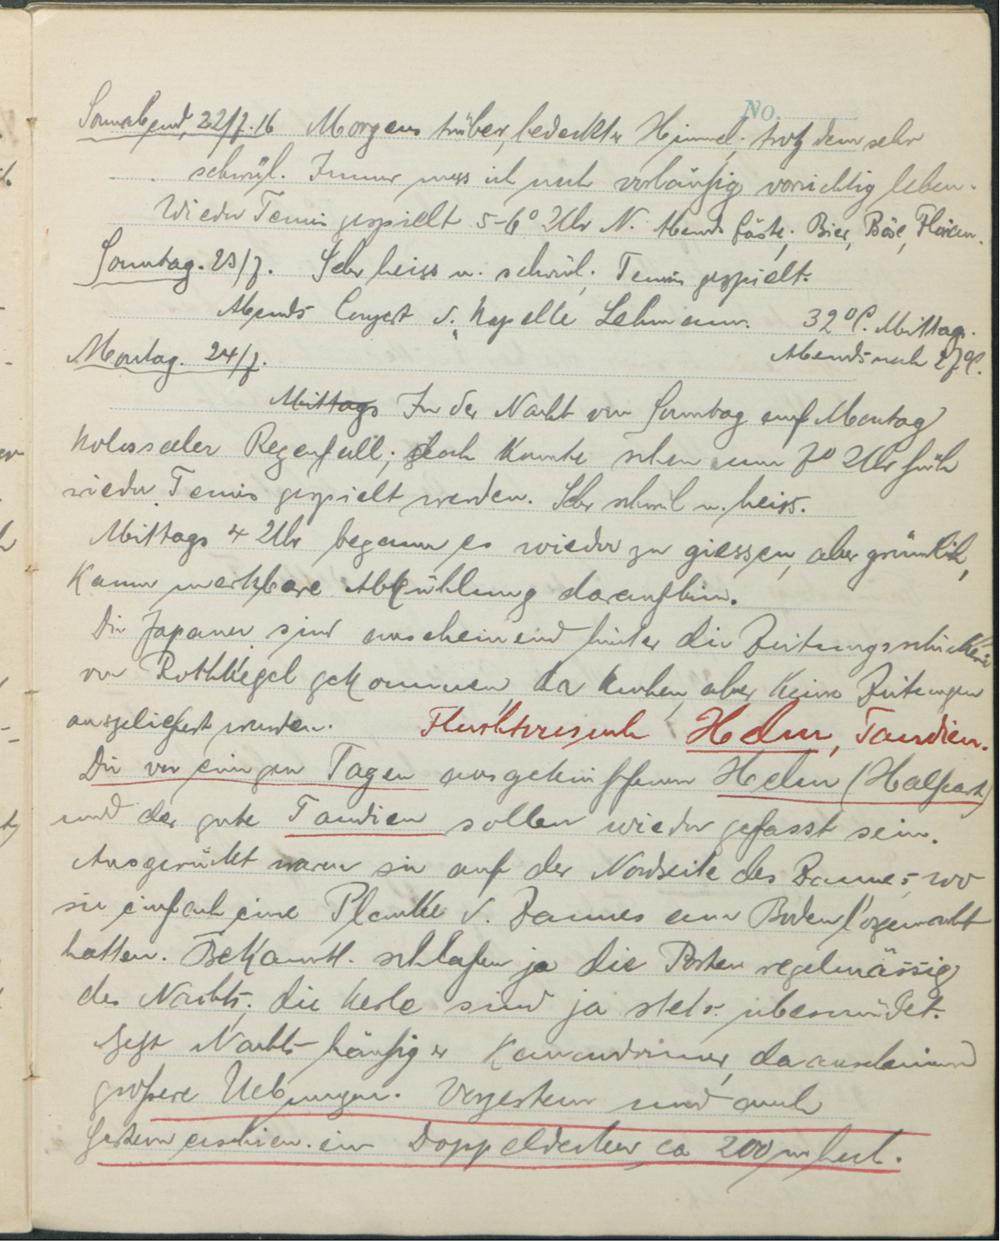 No.
Sonnabend, 22/7.16 Morgens trüber, bedeckter Himmel; trotzdem sehr
schwül. Immer muss ich noch vorläufig vorsichtig leben.
Wieder Tennis gespielt 5-6° Uhr N. Abends Gäste: Bier, Böse,
Sonntag. 23/7. Sehr heiss u. schwül; Tennis gespielt.
Abends Conzert d. Kapelle Lehmann. 32°C. Mittag.
Montag. 24/7. Abends noch 27°C.
Mittags In der Nacht von Sonntag auf Montag
kolossaler Regenfall; doch konnte schon um 7° Uhr früh
wieder Tennis gespielt werden. Sehr schwül u. heiss.
Mittags 4 Uhr begann es wieder zu giessen, aber gründlich,
kaum merkbare Abkühlung daraufhin.
Die Japaner sind anscheinend hinter die
von Rothkegel gekommen, da Kuchen, aber keine Zeitungen
ausgeliefert wurden. Fluchtversuch Helm, Taudien.
Die vor einigen Tagen ausgekniffenen Helm (Halfcast)
und der gute Taudien sollen wieder gefasst sein.
Ausgerückt waren sie auf der Nordseite des Zaunes, wo
sie einfach eine Planke d. Zaunes am Boden losgemacht
hatten. Bekanntl. schlafen ja die Posten regelmässig
des Nachts; die Kerle sind ja stets übermüdet.
Jetzt Nachts häufiger Kanondonner, da anscheinend
grössere Uebungen. Vorgestern und auch
gestern erschien ein Doppeldecker, ca 200 m hoch.